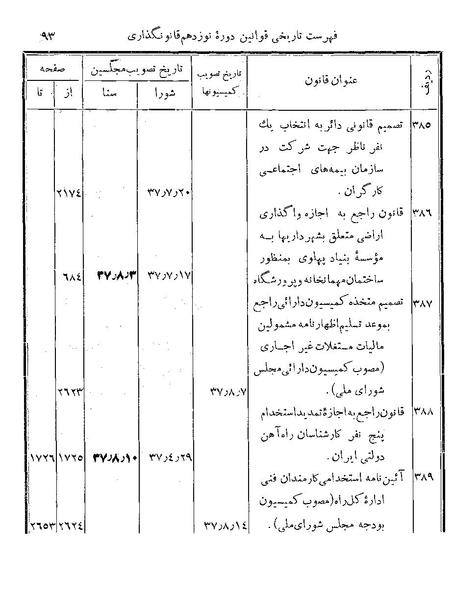 فهرست تاریخی قوانین دورهٔ نوزدهم قانونگذاری ۹۳
ردیف عنوان قانون تاریخ تصویب کمیسیونها تاریخ تصویب مجلسین صفحه
شورا سنا از تا
۳۸۵ تصمیم قانونی دائر به انتخاب یك
نفر ناظر جهت شرکت در
سازمان بیمه‌های اجتماعی
کارگران. ۳۷٫۷٫۲۰ ۲۱۷٤
۳۸۶ قانون راجع به اجازه واگذاری
اراضی متعلق بشهرداریها به
مؤسسهٔ بنیاد پهلوی بمنظور
ساختمان مهمانخانه و پرورشگاه ۳۷٫۷٫۱۷ ۳۷٫۸٫۳ ٦٨٤
۳۸۷ تصمیم متخذه کمیسیون دارائی راجع
بموعد تسلیم اظهارنامه مشمولین
مالیات مستغلات غیر اجاری
(مصوب کمیسیون دارائی مجلس
شورای ملی). ۳۷٫۸٫۷ ۲٦۲۳
۳۸۸ قانون راجع به اجازهٔ تمدید استخدام
پنج نفر کارشناسان راه‌آهن
دولتی ایران. ۳۷٫٤٫۲۹ ۳۷٫۸٫۱۰ ۱۷۲۵ ۱۷۲٦
۳۸۹ آئین نامه استخدامی کارمندان فنی
ادارهٔ کل راه (مصوب کمیسیون
بودجه مجلس شورای ملی). ۳۷٫۸٫۱٤ ۲٦۲٤ ۲٦۵۳